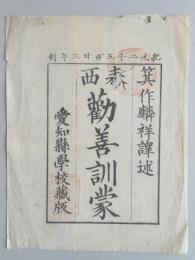 紀元二千五百卅三年刻
箕作麟祥譯述
泰西
勸善訓蒙
愛知縣學校藏版